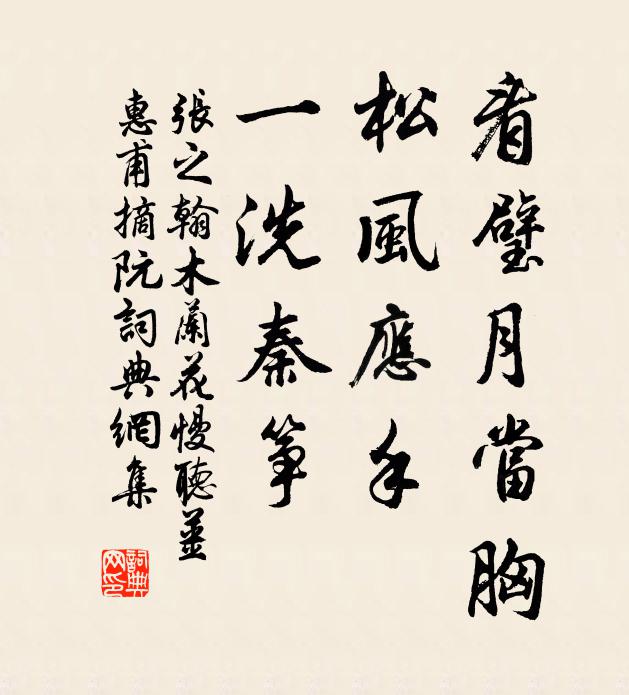 看璧月當胸
松風應手
一洗秦箏
張之翰木蘭花慢聽姜
惠甫摘阮詞典網集
詞典網印